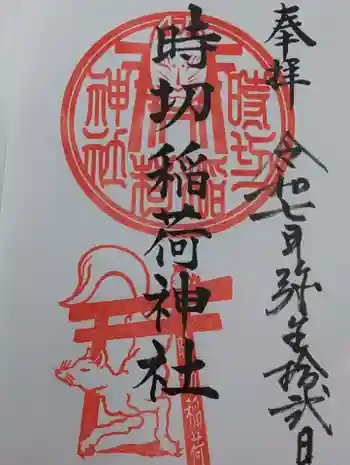 奉拝
令和七年弥生拾弐日
時切稲荷神社
時切稲荷神社